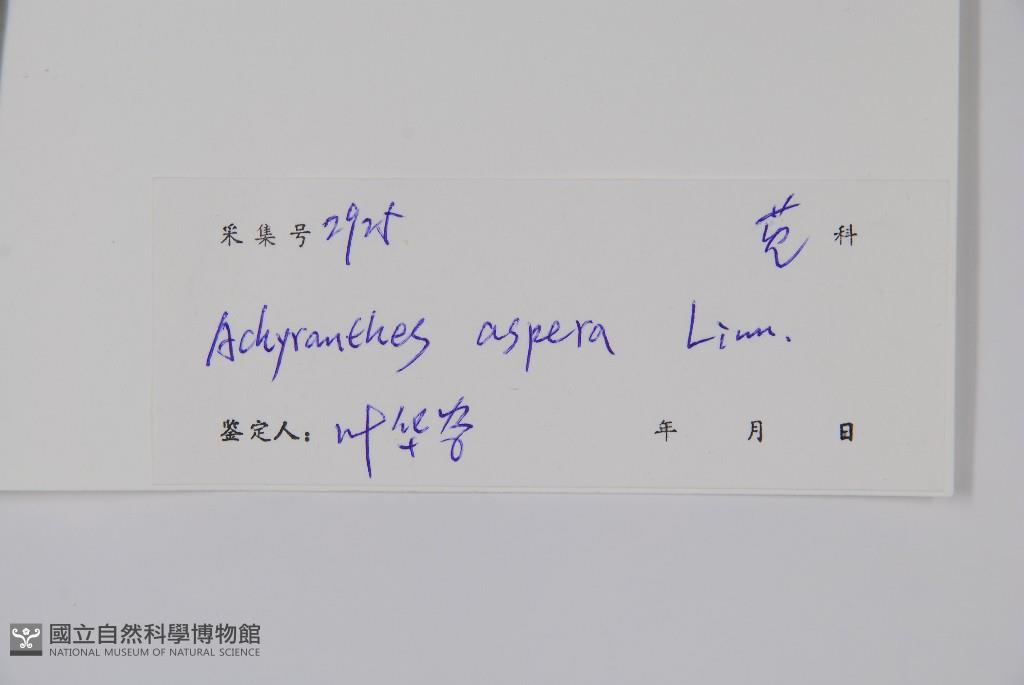 采集号 2925 苋 科
Achyranthes aspera Linn.
鉴定人: 叶华谷 年 月 日
國立自然科學博物館
NATIONAL MUSEUM OF NATURAL SCIENCE